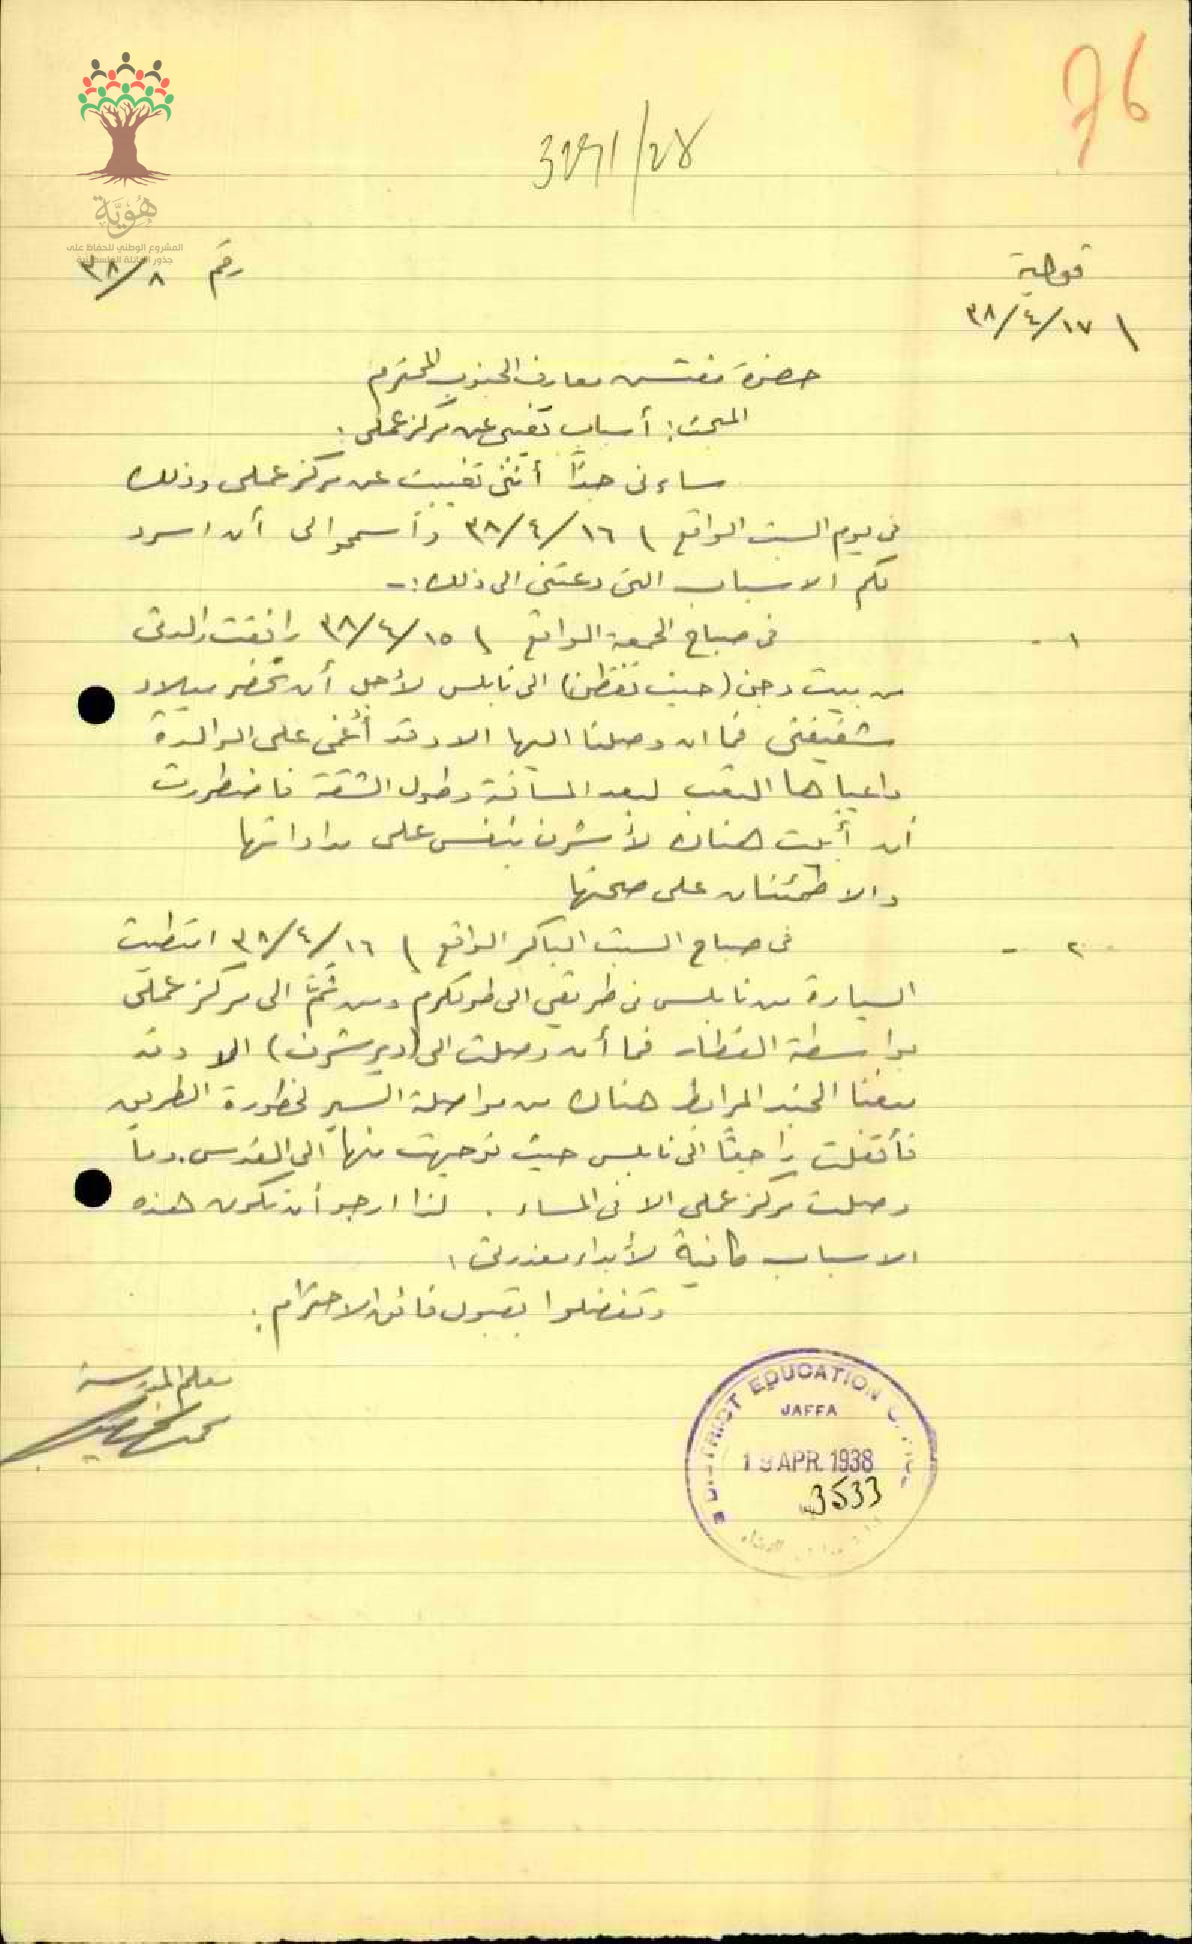 76
3271/28
هُوِيَّة
المشروع الوطني للحفاظ على
جذور العائلة الفلسطينية
رقم ٣٨/٨
قوصية
٣٨/٤/١٧
حضرة مفتش معارف الجنوب المحترم
المبحث: أسباب تغيبي عن مركز عملي.
ساءني جداً أنني تغيبت عن مركز عملي وذلك
في يوم السبت الواقع ٣٨/٤/١٦ وأسمحوا لى أن اسرد
لكم الاسباب التي دعتني الى ذلك:-
١- في صباح الجمعة الواقع ٣٨/٤/١٥ رافقت والدتي
من بيت دجن (حيث تقطن) الى نابلس لأجل أن تحضر ميلاد
شقيقتي فما ان وصلنا اليها الا وقد أُغمي على الوالدة
واعياها التعب لبعد المسافة وطول الشقة فاضطررت
أن أبيت هناك لأشرف بنفسي على مداواتها
والاطمئنان على صحتها
٢- في صباح السبت الباكر الواقع ٣٨/٤/١٦ امتطيت
السيارة من نابلس في طريقي الى طولكرم ومن ثَمَّ الى مركز عملي
بواسطة القطار فما أن وصلت الى (دير شرف) الا وقد
منعنا الجند المرابط هناك من مواصلة السير لخطورة الطريق
فأقفلت راجعًا الى نابلس حيث توجهت منها الى القدس. وما
وصلت مركز عملي الا في المساء. لذا ارجو أن تكون هذه
الاسباب كافية لأبداء معذرتي.
وتفضلوا بقبول فائق الاحترام.
معلم المدرسة
DISTRICT EDUCATION
JAFFA
19 APR. 1938
3533